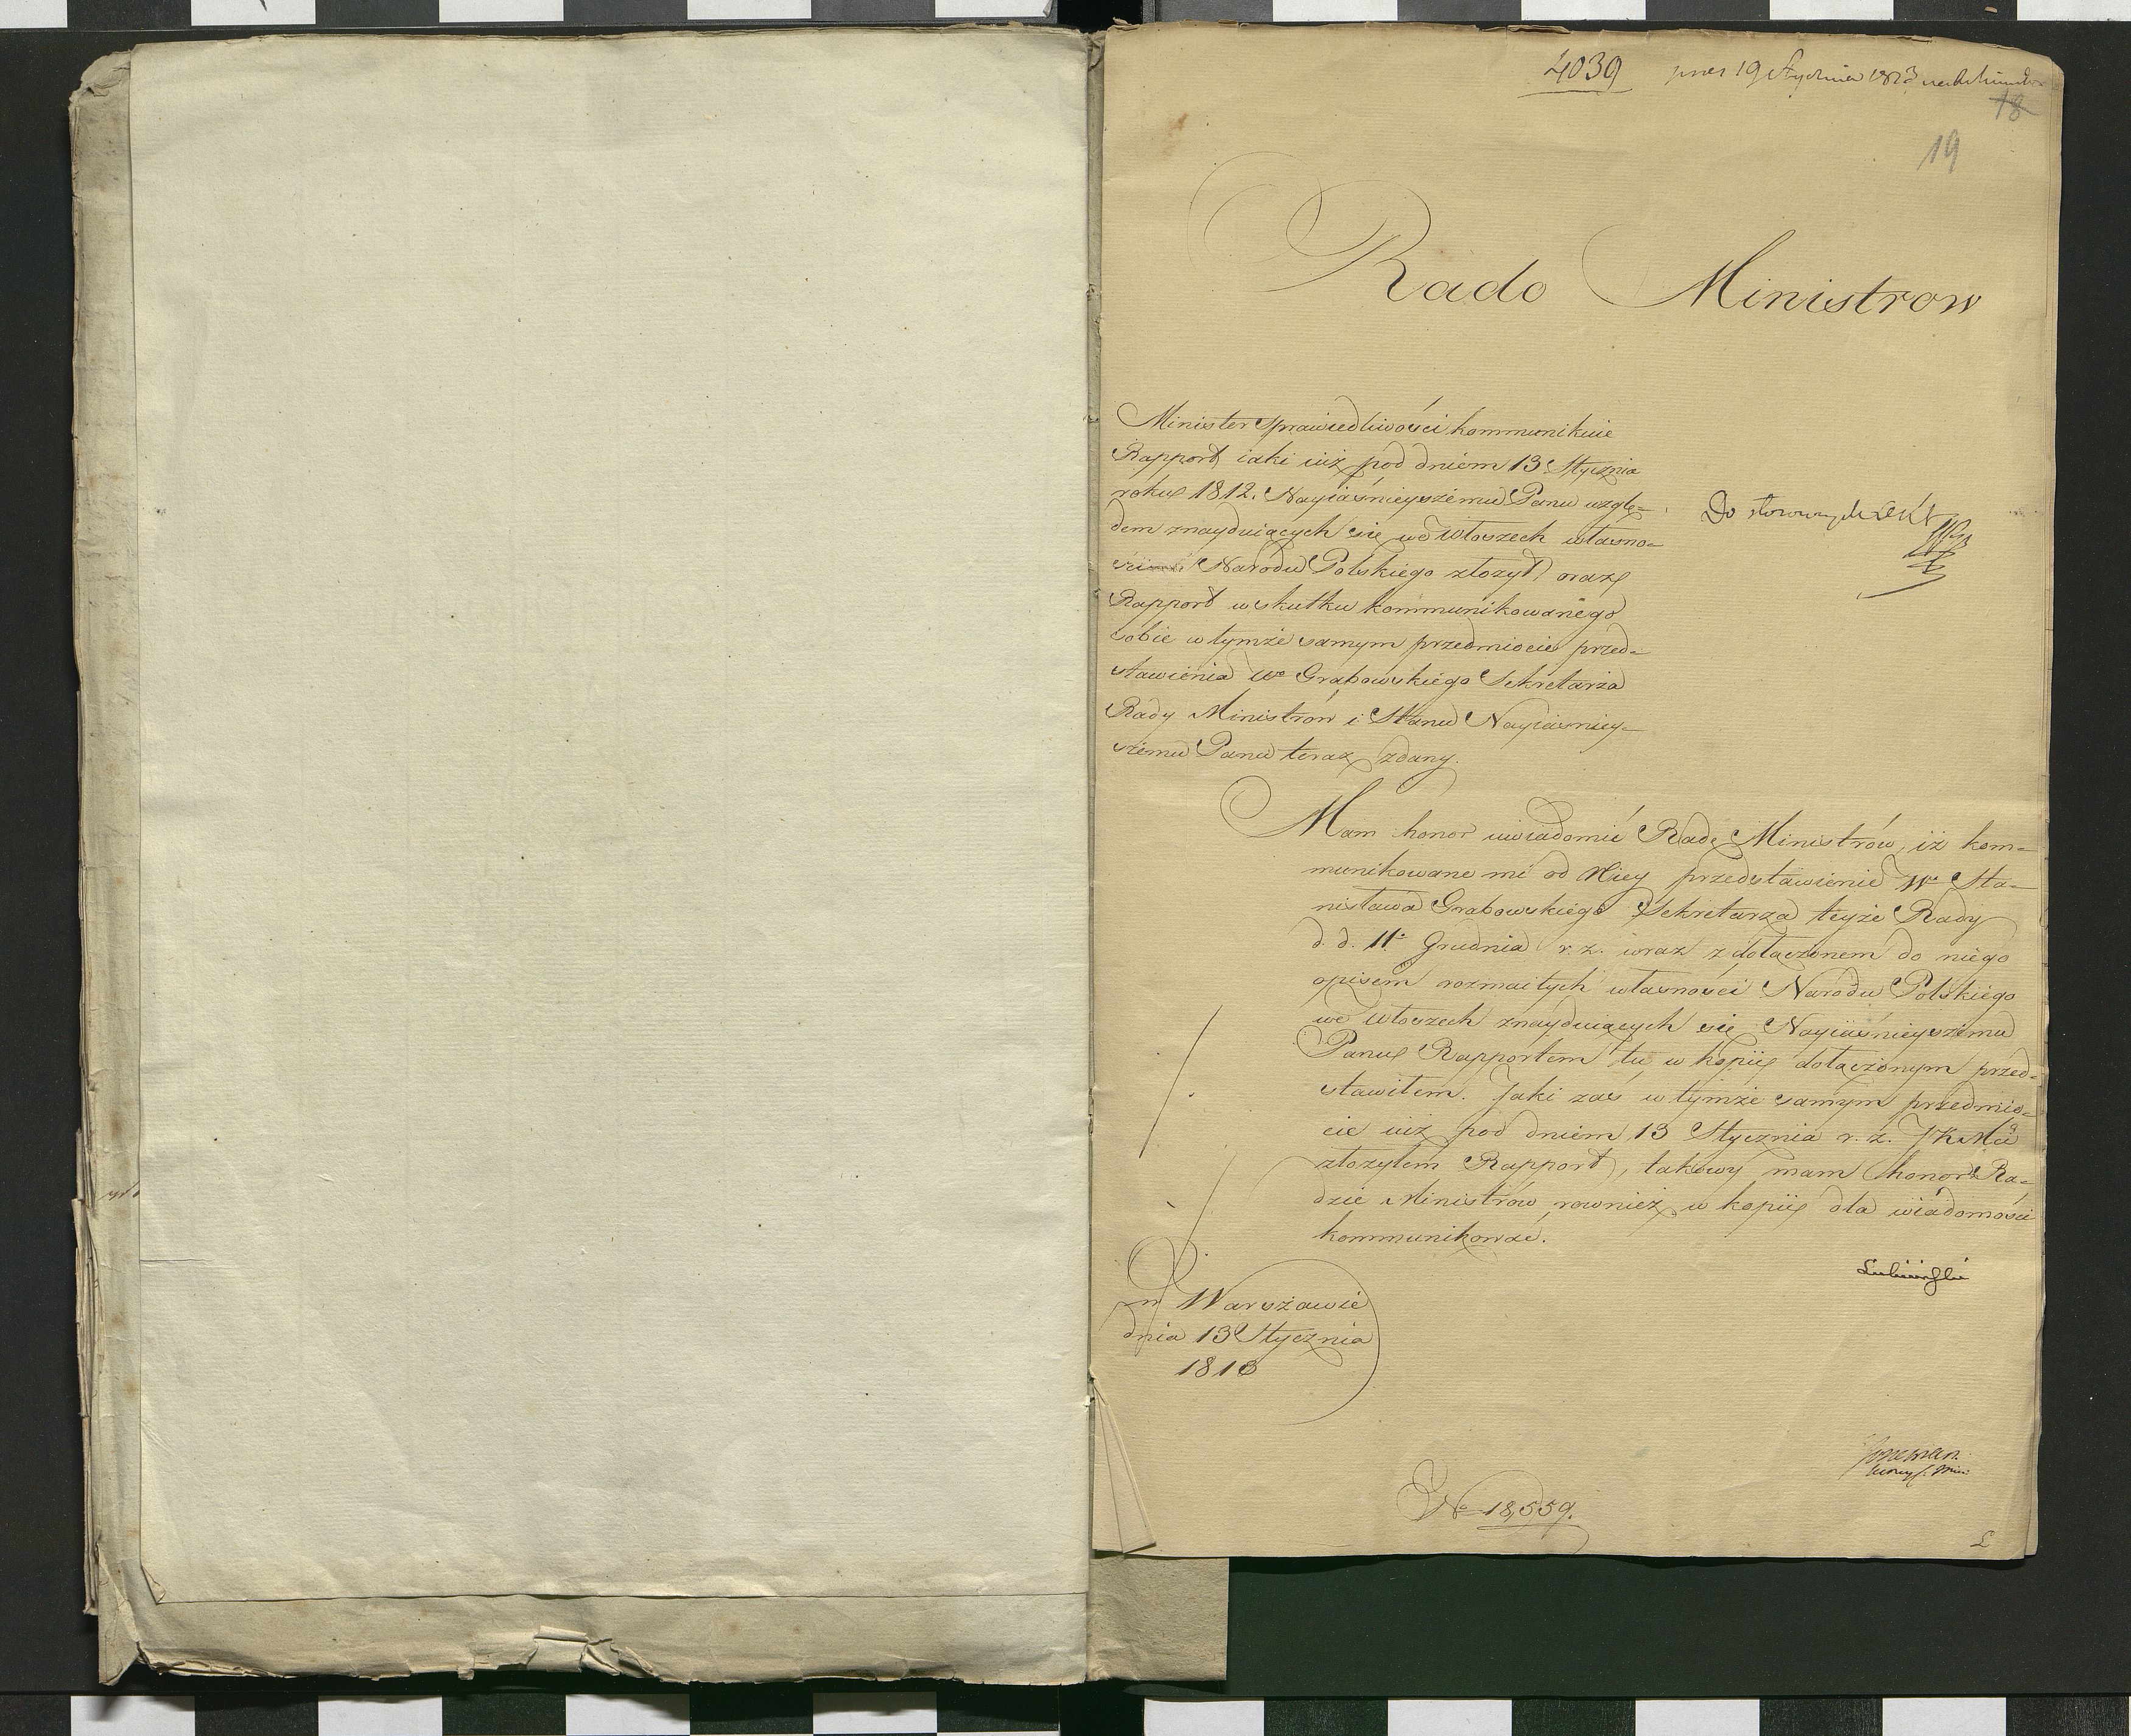 4039 19 Stycznia 1813
18
19
Rado Ministrow
Minister Sprawiedliwości kommunikuie
Rapport iaki iuż pod dniem 13 Stycznia
roku 1812. Nayiaśnieyszemu Panu wzglę-
dem znayduiących się we Włoszech własno-
ści Narodu Polskiego złożył, oraz
Rapport w skutku kommunikowanego
sobie w tymże samym przedmiocie przed-
stawienia Wo Grabowskiego Sekretarza
Rady Ministrów i Stanu Nayiaśniey-
szemu Panu teraz zdany.
Do stosownych Akt
Mam honor uwiadomić Radę Ministrów, iż kom-
munikowane mi od Niey przedstawienie Wo Sta-
nisława Grabowskiego Sekretarza teyże Rady
d. d. 11o Grudnia r. z. wraz z dołączonem do niego
opisem rozmaitych własności Narodu Polskiego
we Włoszech znayduiących się Nayiaśnieyszemu
Panu Rapportem tu w kopii dołączonym przed-
stawiłem. Jaki zaś w tymże samym przedmio-
cie iuż pod dniem 13 Stycznia r. z. JKMci
złożyłem Rapport, takowy mam honor Ra-
dzie Ministrów, rownież w kopii dla wiadomości
kommunikować.
Łubieński
w Warszawie
dnia 13 Stycznia
1813
No 18,559.